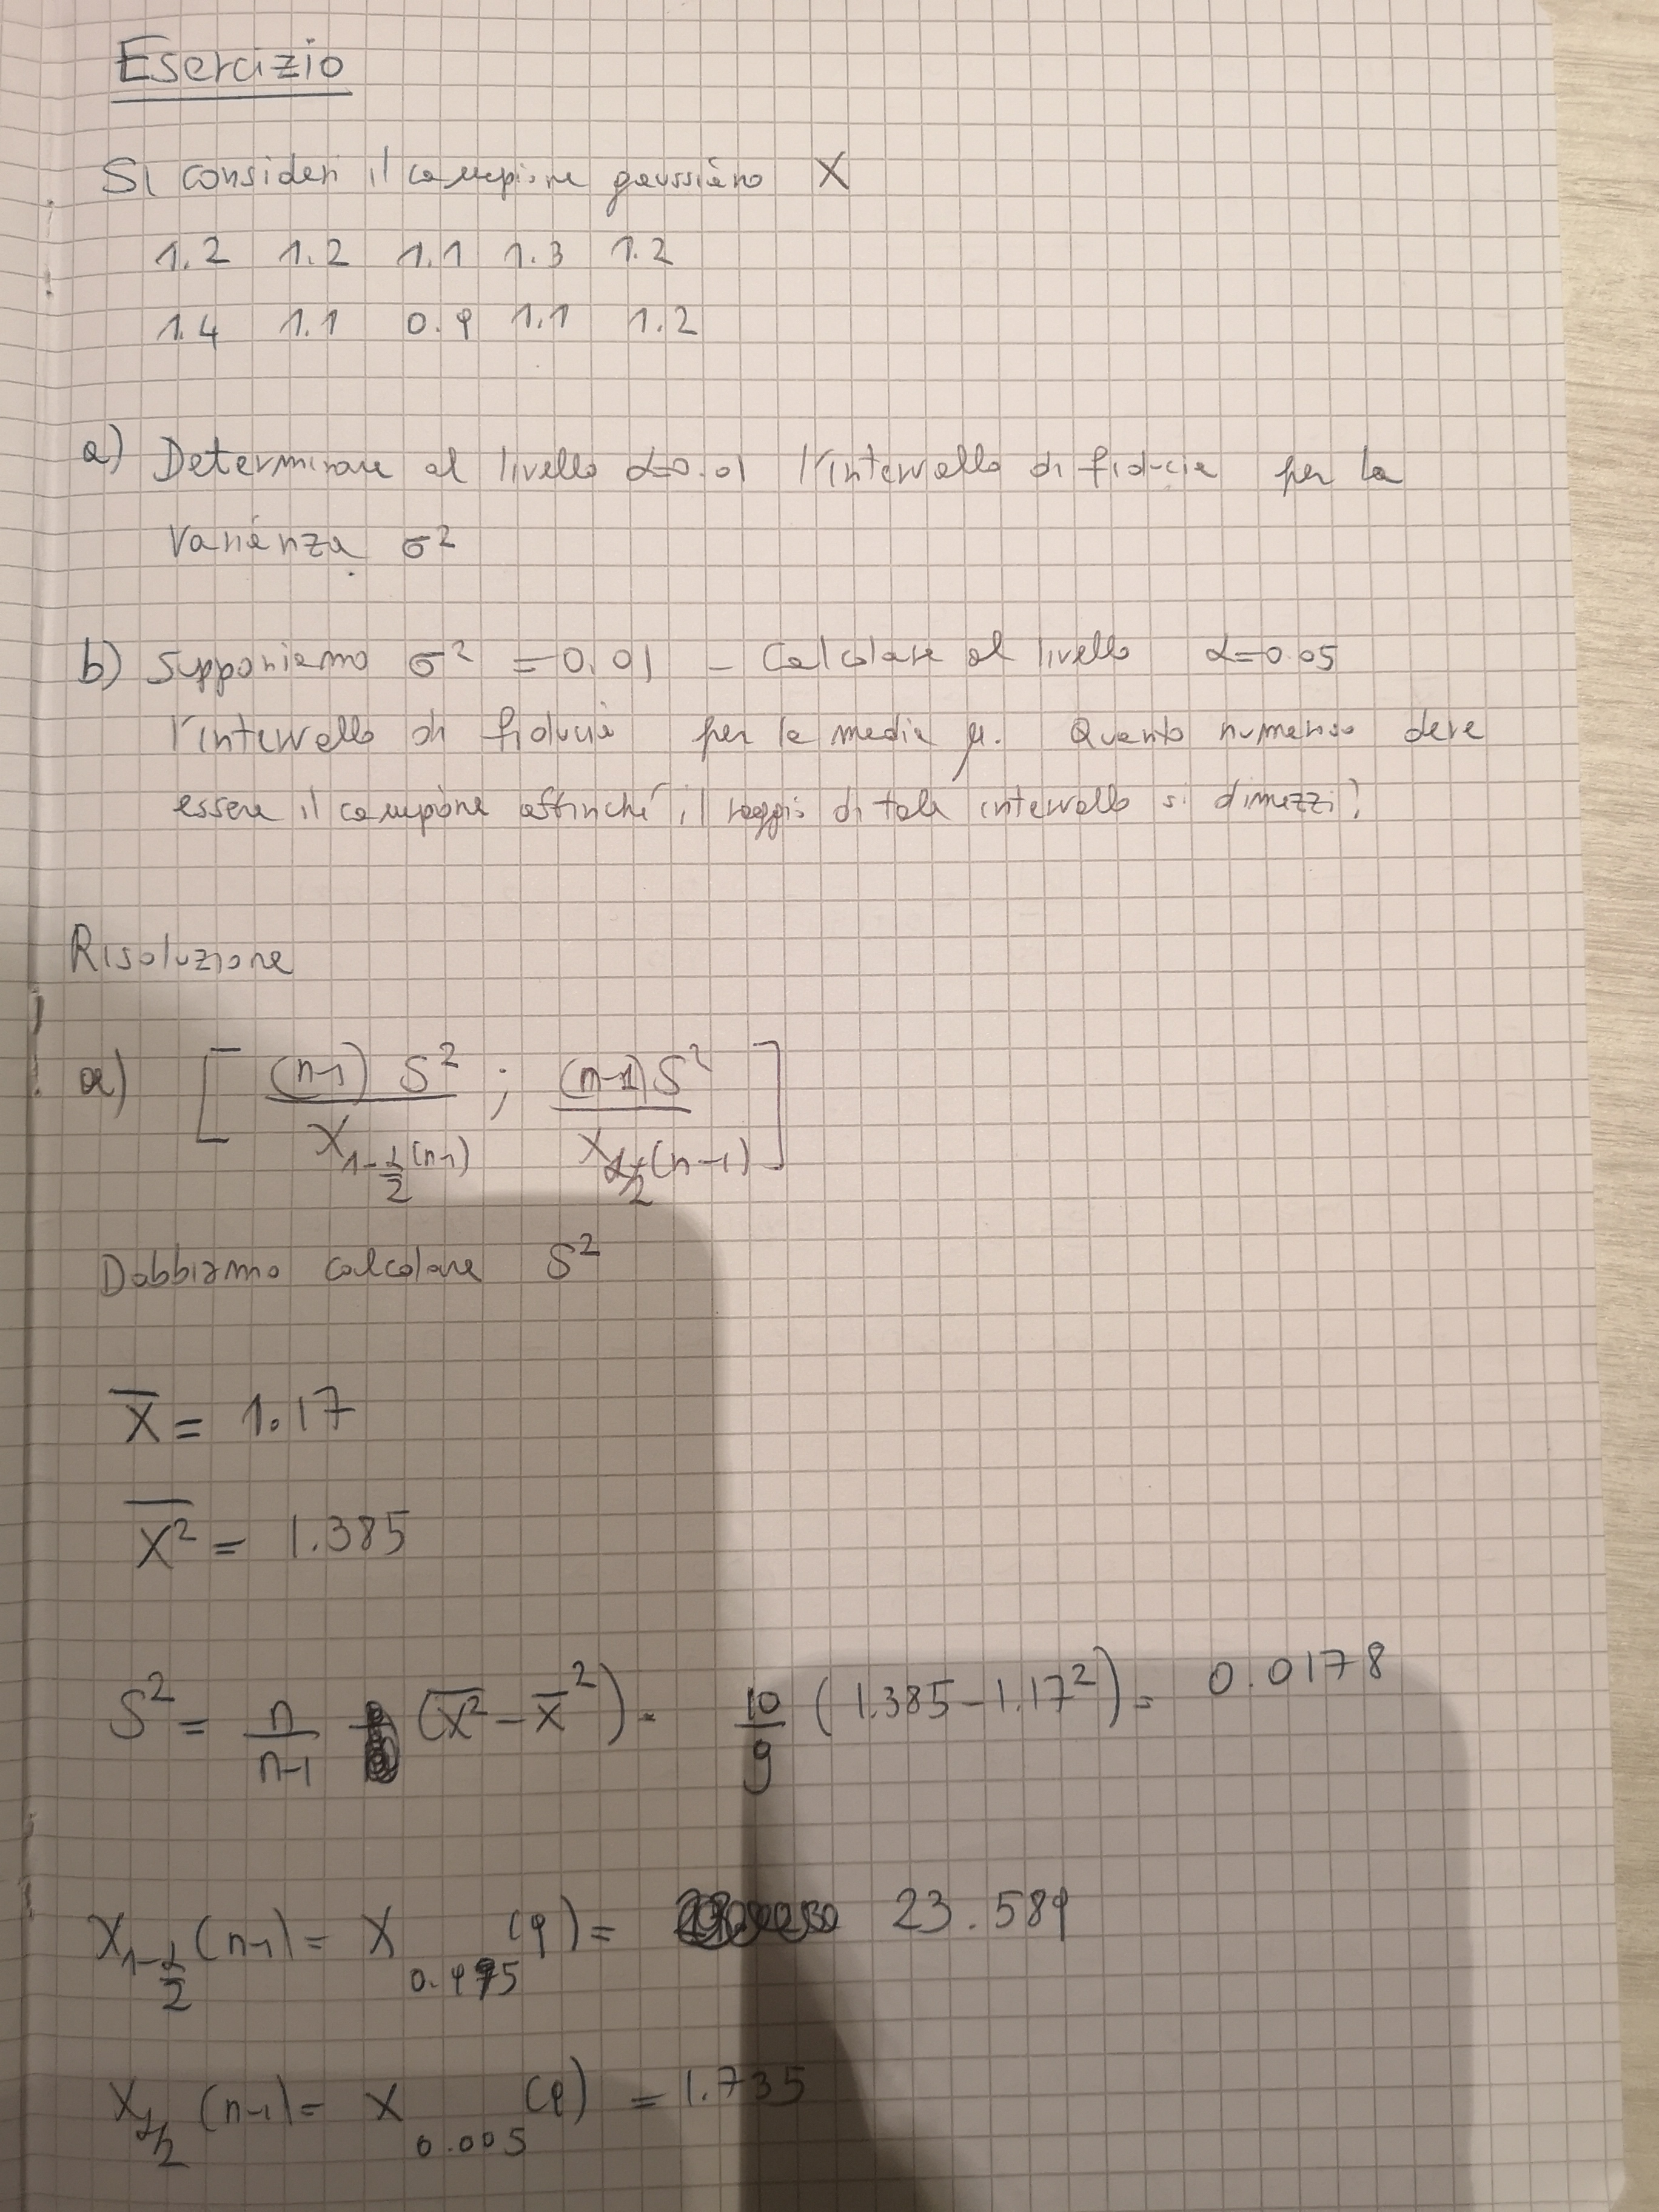 Esercizio
Si consideri il campione gaussiano X
1.2 1.2 1.1 1.3 1.2
1.4 1.1 0.9 1.1 1.2
a) Determinare al livello α=0.01 l'intervallo di fiducia per la
Varianza σ²
b) Supponiamo σ² = 0.01 - Calcolare al livello α=0.05
l'intervallo di fiducia per la media μ. Quanto numeroso deve
essere il campione affinché il raggio di tale intervallo si dimezzi?
Risoluzione
a) [ (n-1) S² / X_{1-α/2}(n-1) ; (n-1) S² / X_{α/2}(n-1) ]
Dobbiamo calcolare S²
X̅ = 1.17
\overline{X²} = 1.385
S² = n/(n-1) (\overline{X²} - x̅²) = 10/9 (1.385-1.17²) = 0.0178
X_{1-α/2}(n-1) = X_{0.995}(9) = 23.589
X_{α/2}(n-1) = X_{0.005}(9) = 1.735